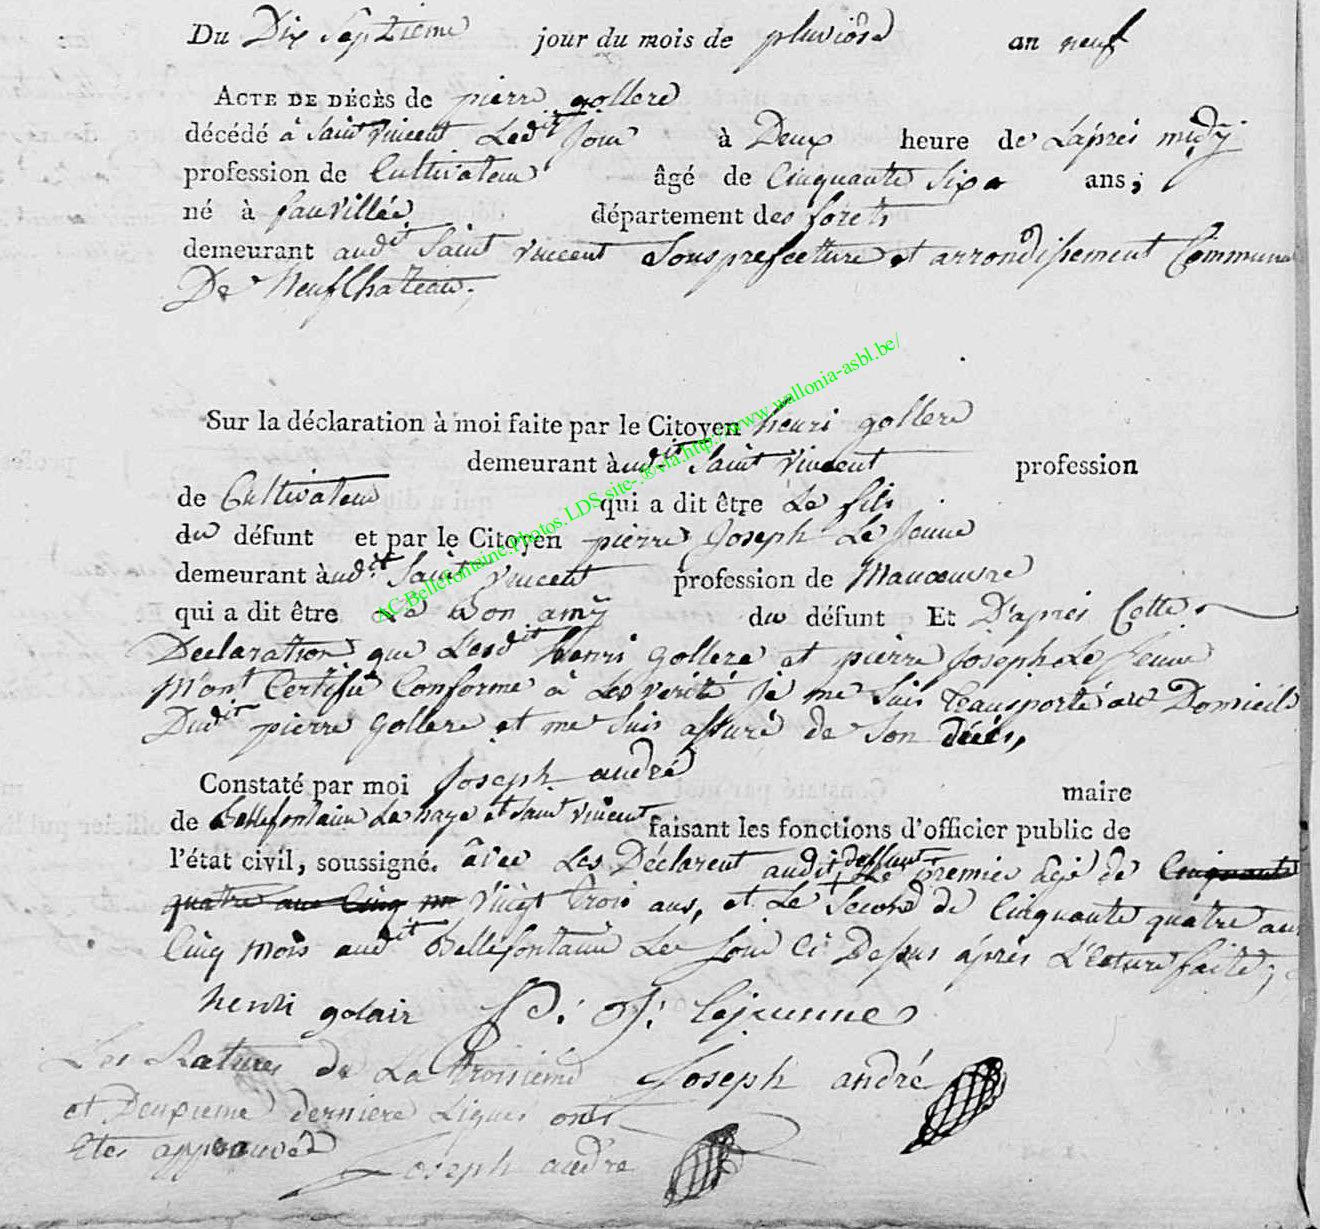 Du Dix Septieme jour du mois de pluviose an neuf
ACTE DE DÉCÈS de pierre gollere
décédé à Saint Vincent Ledit Jour à Deux heure de Laprès midÿ
profession de Cultivateur âgé de Cinquante Six ans;
né à fauvillée département des forets
demeurant audit Saint Vincent Sousprefecture et arrondissement Communal
De Neufchateau;
Sur la déclaration à moi faite par le Citoyen henri gollere
demeurant àudit Saint Vincent profession
de Cultivateur qui a dit être Le fils
du défunt et par le Citoyen pierre Joseph Le Jeune
demeurant àudit Saint Vincent profession de Manoeuvre
qui a dit être Le bon amÿ du défunt Et D'après Cette
Declaration que Lesdit Henri gollere et pierre Joseph Le Jeune
M'ont Certifié Conforme à La verité je me Suis transporté au Domicile
Dudit pierre gollere et me Suis assuré de Son décès,
Constaté par moi Joseph andré maire
de Bellefontaine Lahage et Saint Vincent faisant les fonctions d'officier public de
l'état civil, soussigné. avec Les Déclarent audit deffunt Le premier agé de Cinquante
quatre ans Cinq m Vingt trois ans, et Le Second de Cinquante quatre ans
Cinq mois audit Bellefontaine Le Jour Ci Dessus après L'ecture faite;
henri golair P: J: lejeunne
Les Ratures de La troisieme Joseph andré
et Deuxieme derniere Lignes ont
Etes approuvée Joseph andré
AC-Bellefontaine.Photos.LDS.site-.®via.http://www.wallonia-asbl.be/